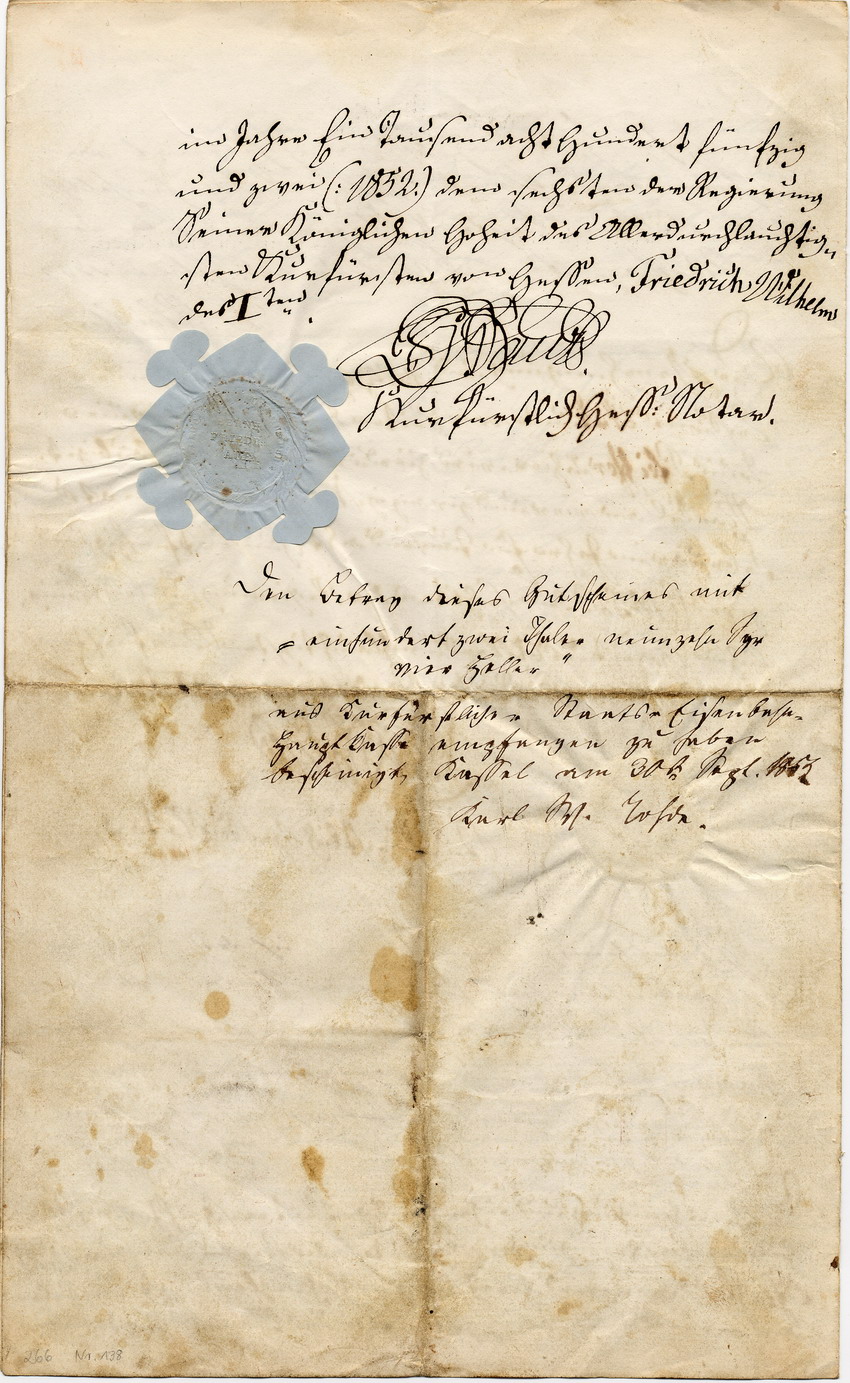 im Jahre Ein Tausend acht Hundert fünfzig
und zwei (: 1852.) dem sechsten der Regierung
Seiner Königlichen Hoheit des Allerdurchlauchtig„
sten Kurfürsten von Hessen, Friedrich Wilhelm
des I ten.
Kurfürstlich Hess: Notar.
Den Betrag dieses Gutscheines mit
„einhundert zwei Thaler neunzehn Sgr
vier Heller“
aus Kurfürstlicher Staats-Eisenbahn-
Hauptkasse empfangen zu haben
bescheinigt, Kassel am 30t Sept. 1852
Karl W. Rohde.
266 Nr. 138